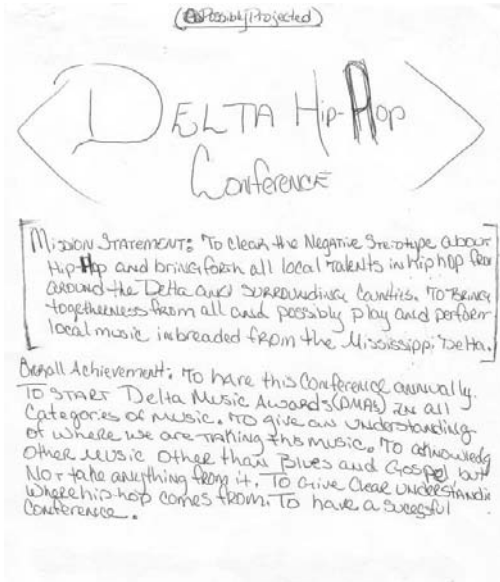 (Possibly Projected)
DELTA Hip-Hop
Conference
Mission Statement: To clear the Negative Steriotype about
Hip-Hop and bring forth all local talents in hip hop from
around the Delta and surrounding Counties. To bring
togetherness from all and possibly play and perform
local music inbreaded from the Mississippi Delta.
Overall Achievement: To have this Conference annually.
To START Delta Music Awards (DMAs) in all
Categories of music. To give an understanding
of where we are taking this music. To
other music other than Blues and Gospel but
Not take anything from it. To Give Clear
where hip hop comes from. To have a sucessful
Conference.